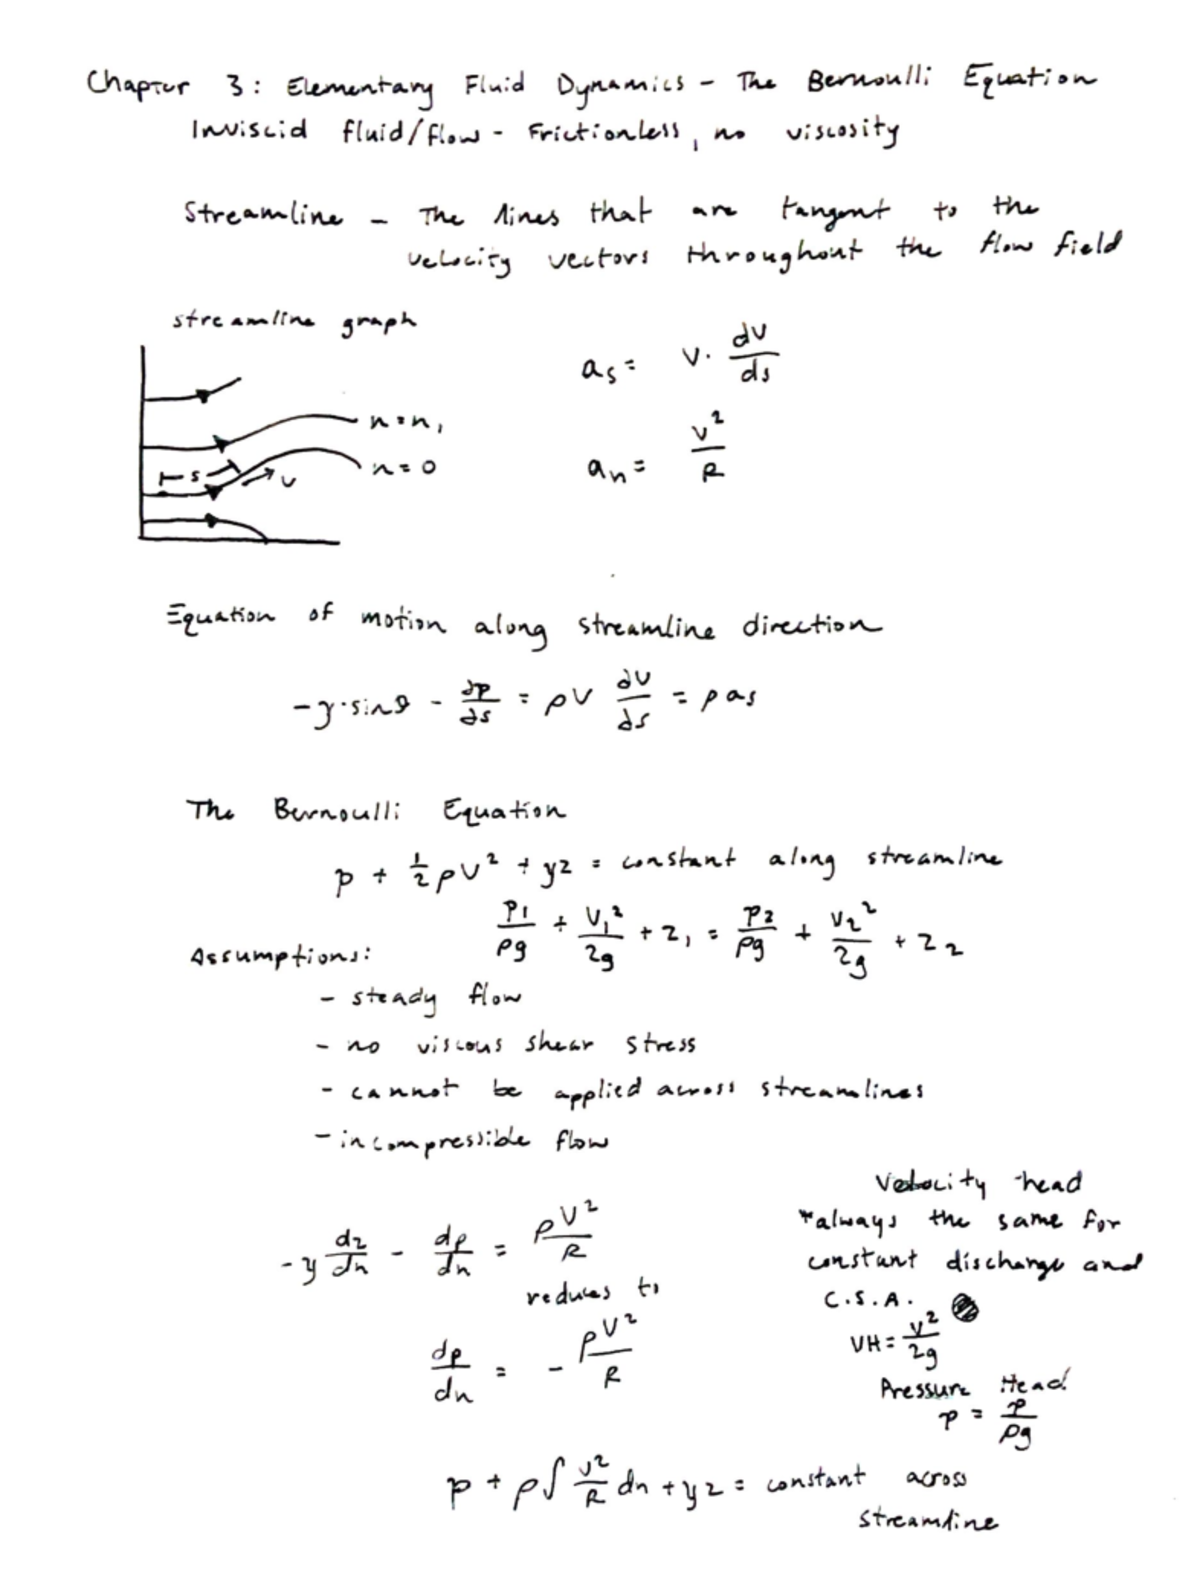 Chapter 3: Elementary Fluid Dynamics - The Bernoulli Equation
Inviscid fluid/flow - Frictionless, no viscosity
Streamline - The lines that are tangent to the
velocity vectors throughout the flow field
streamline graph
n=n₁
n=0
s
v
aₛ = V · dV/ds
aₙ = V²/R
Equation of motion along streamline direction
-γ·sinθ - ∂p/∂s = ρV ∂V/∂s = ρaₛ
The Bernoulli Equation
p + ½ρV² + γz = constant along streamline
p₁/ρg + V₁²/2g + z₁ = p₂/ρg + V₂²/2g + z₂
Assumptions:
- steady flow
- no viscous shear stress
- cannot be applied across streamlines
- incompressible flow
-γ dz/dn - dp/dn = ρV²/R
reduces to
dp/dn = - ρV²/R
Velocity head
*always the same for
constant discharge and
C.S.A.
VH = V²/2g
Pressure Head
p = p/ρg
p + ρ∫ V²/R dn + γz = constant across
streamline